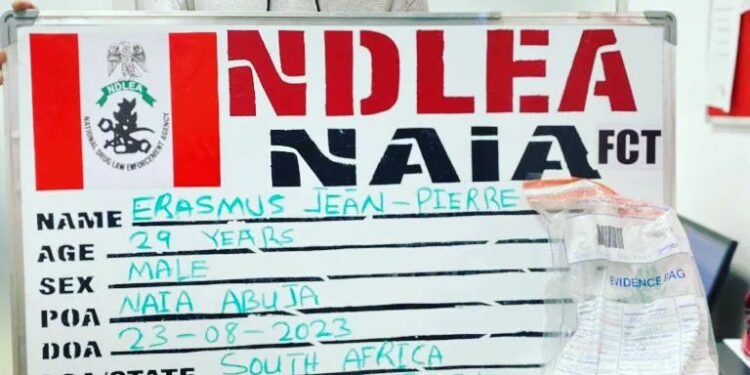 NDLEA
NATIONAL DRUG LAW ENFORCEMENT AGENCY
NDLEA
NAIA FCT
NAME ERASMUS JEAN-PIERRE
AGE 29 YEARS
SEX MALE
POA NAIA ABUJA
DOA 23-08-2023
/STATE SOUTH AFRICA
EVIDENCE BAG